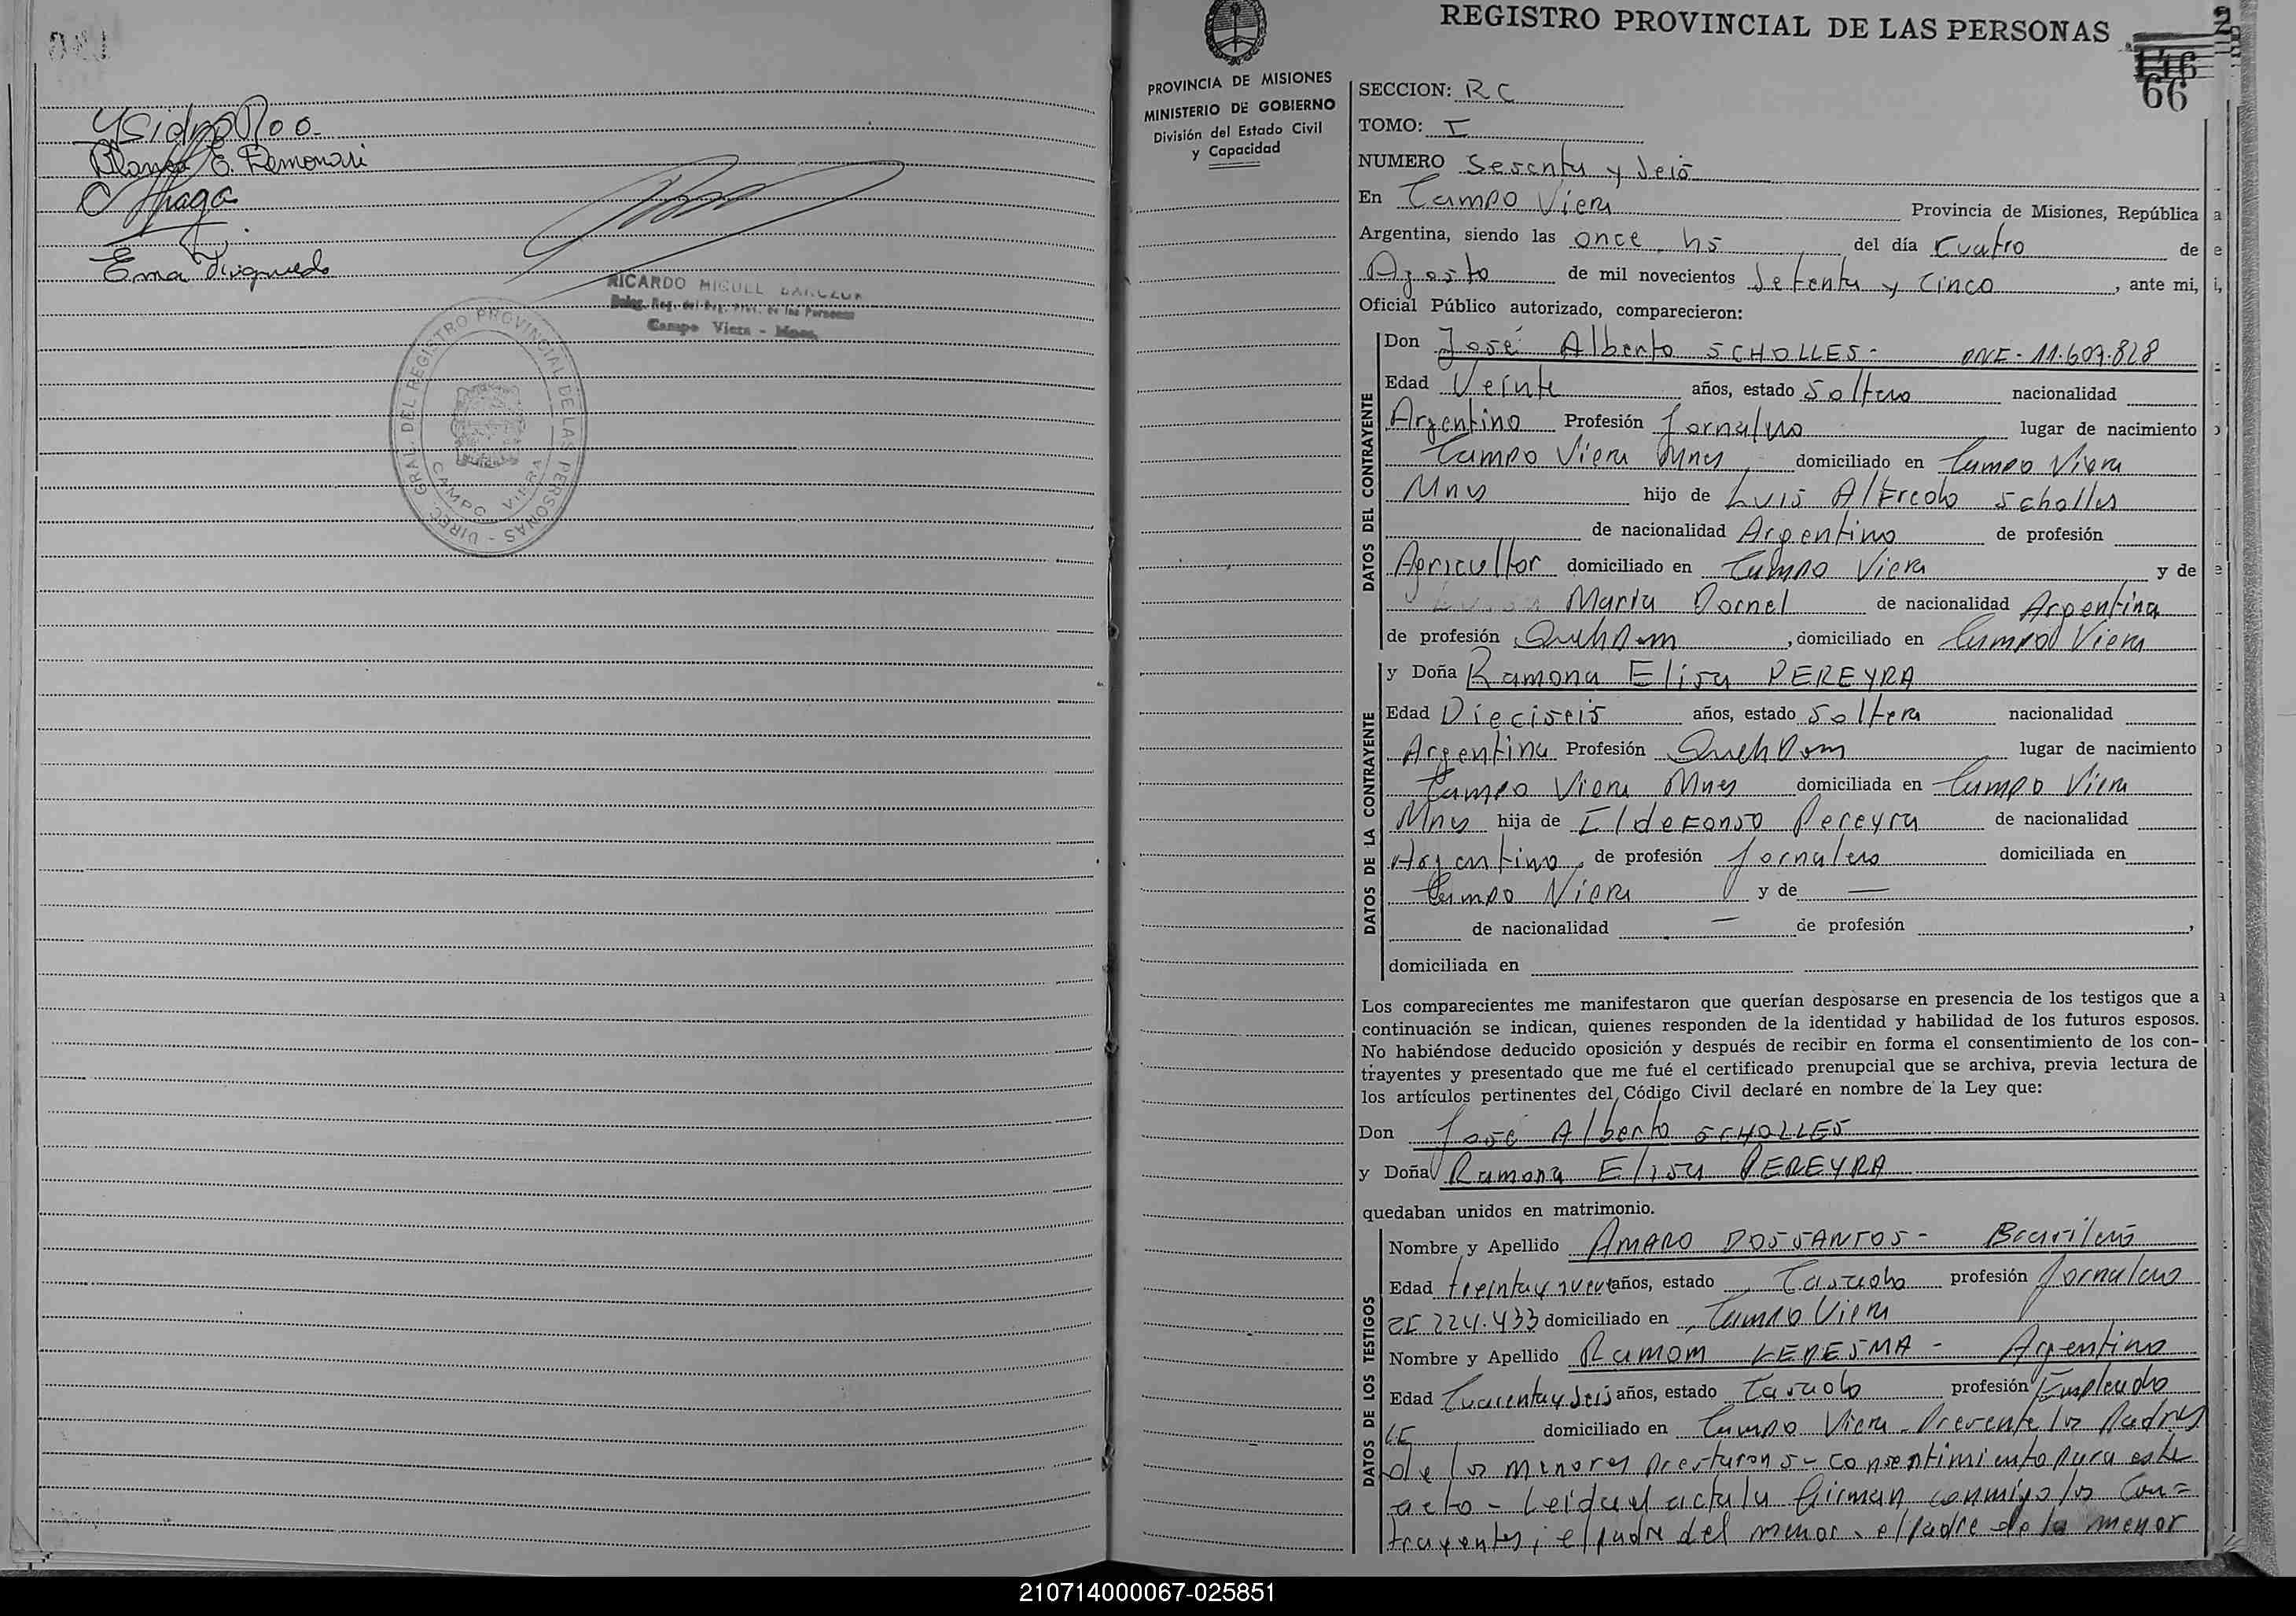 Ysidro Roo
Blanca E.
Ema
RICARDO MIGUEL
Campo Viera - Mnes.
DIREC. GRAL. DEL REGISTRO PROVINCIAL DE LAS PERSONAS -
CAMPO VIERA
REGISTRO PROVINCIAL DE LAS PERSONAS
2
116
66
PROVINCIA DE MISIONES
MINISTERIO DE GOBIERNO
División del Estado Civil
y Capacidad
SECCION: RC
TOMO: I
NUMERO Sesenta y Seis
En Campo Viera Provincia de Misiones, República
Argentina, siendo las once hs del día Cuatro de
Agosto de mil novecientos Setenta y Cinco, ante mi,
Oficial Público autorizado, comparecieron:
DATOS DEL CONTRAYENTE
Don José Alberto SCHOLLES - DNI - 11.607.828
Edad Veinte años, estado Soltero nacionalidad
Argentino Profesión Jornalero lugar de nacimiento
Campo Viera Mnes domiciliado en Campo Viera
Mnes hijo de Luis Alfredo Scholles
de nacionalidad Argentino de profesión
Agricultor domiciliado en Campo Viera y de
Maria Dornel de nacionalidad Argentina
de profesión Queh Dom, domiciliado en Campo Viera
DATOS DE LA CONTRAYENTE
y Doña Ramona Elisa PEREYRA
Edad Dieciseis años, estado Soltera nacionalidad
Argentina Profesión Queh Dom lugar de nacimiento
Campo Viera Mnes domiciliada en Campo Viera
Mnes hija de Ildefonso Pereyra de nacionalidad
Argentino, de profesión Jornalero domiciliada en
Campo Viera y de —
de nacionalidad — de profesión ,
domiciliada en
Los comparecientes me manifestaron que querían desposarse en presencia de los testigos que a
continuación se indican, quienes responden de la identidad y habilidad de los futuros esposos.
No habiéndose deducido oposición y después de recibir en forma el consentimiento de los con-
trayentes y presentado que me fué el certificado prenupcial que se archiva, previa lectura de
los artículos pertinentes del Código Civil declaré en nombre de la Ley que:
Don José Alberto SCHOLLES
y Doña Ramona Elisa PEREYRA
quedaban unidos en matrimonio.
DATOS DE LOS TESTIGOS
Nombre y Apellido AMARO DOS SANTOS - Brasileño
Edad treinta y nueve años, estado Casado profesión Jornalero
CI 224.433 domiciliado en Campo Viera
Nombre y Apellido Ramom LEDESMA - Argentino
Edad Cuarenta y Seis años, estado Casado profesión Empleado
LE domiciliado en Campo Viera - Presente los Padres
de los menores prestaron su consentimiento para este
acto - Leida el acta la firman conmigo los Con=
trayentes, el padre del menor y el padre de la menor
210714000067-025851